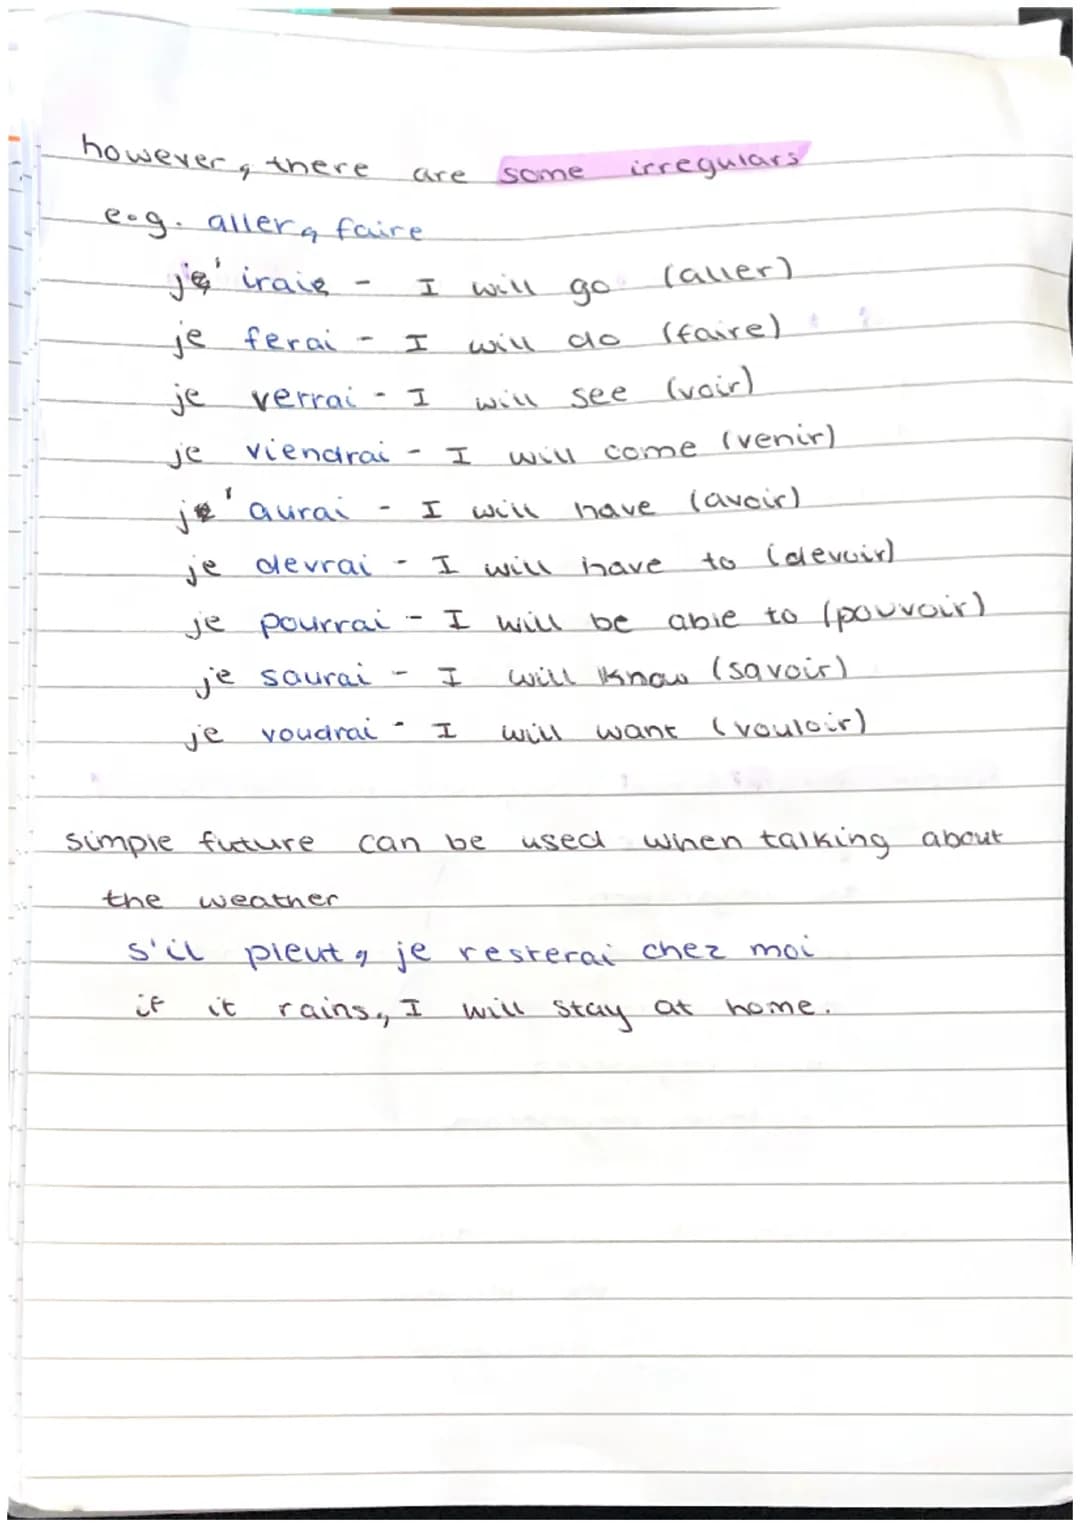 however, there are some irregulars
e.g. aller, faire
j' irais - I will go (aller)
je ferai - I will do (faire)
je verrai - I will see (voir)
je viendrai - I will come (venir)
j' aurai - I will have (avoir)
je devrai - I will have to (devoir)
je pourrai - I will be able to (pouvoir)
je saurai - I will know (savoir)
je voudrai - I will want (vouloir)
simple future can be used when talking about
the weather
s'il pleut, je resterai chez moi
if it rains, I will stay at home.